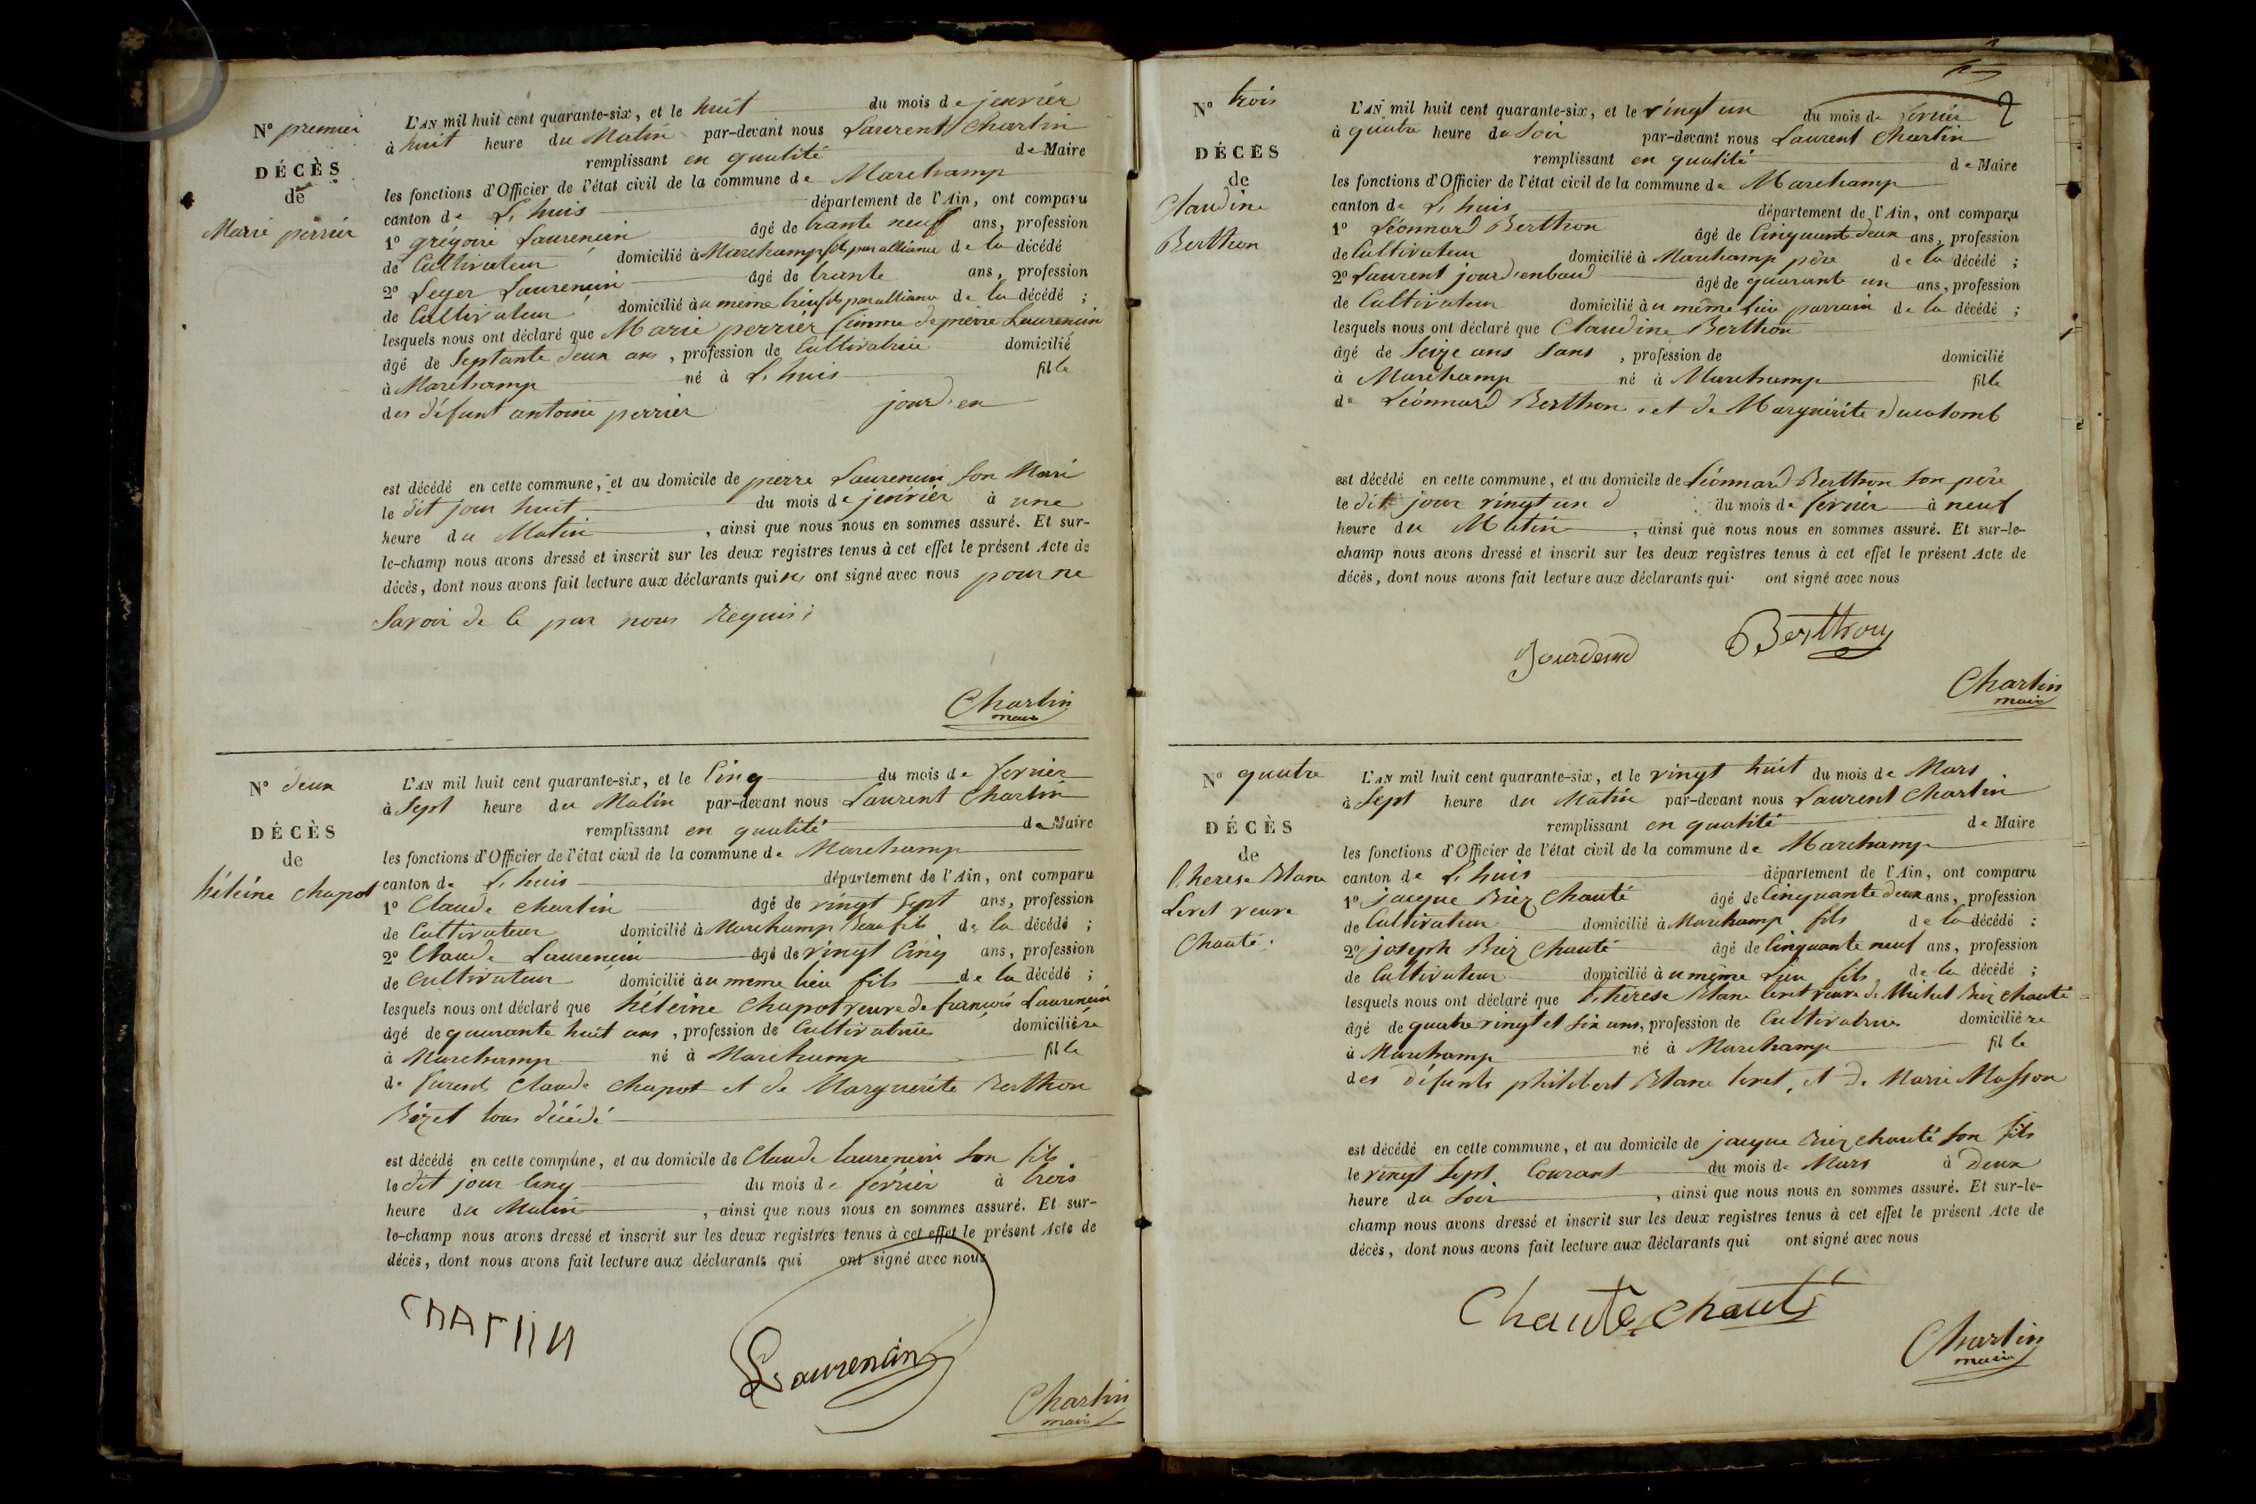 N° premier
DÉCÈS
de
Marie perrier
L'AN mil huit cent quarante-six, et le huit du mois de jenvier
à huit heure du Matin par-devant nous Laurent Chartin
remplissant en qualité de Maire
les fonctions d'Officier de l'état civil de la commune de Marchamp
canton de L. huis département de l'Ain, ont comparu
1° grégoire Laurencin âgé de trante neuf ans, profession
de Cultivateur domicilié à Marchamp fils par alliance de la décédé
2° Leger Laurencin âgé de trante ans, profession
de Cultivateur domicilié au même lieu fils par alliance de la décédé ;
lesquels nous ont déclaré que Marie perrier femme de pierre Laurencin
âgé de Septante deux ans, profession de Cultivatrice domicilié
à Marchamp né à L. huis fille
des défunt antoine perrier jourd. en
est décédé en cette commune, et au domicile de pierre Laurencin Son Mari
le dit jour huit du mois de jenvier à une
heure du Matin, ainsi que nous nous en sommes assuré. Et sur-
le-champ nous avons dressé et inscrit sur les deux registres tenus à cet effet le présent Acte de
décès, dont nous avons fait lecture aux déclarants qui ont signé avec nous pour ne
Savoir de ce par nous Requis
Chartin
maire
N° deux
DÉCÈS
de
héleine Chapot
L'AN mil huit cent quarante-six, et le Cinq du mois de fevrier
à Sept heure du Matin par-devant nous Laurent Chartin
remplissant en qualité de Maire
les fonctions d'Officier de l'état civil de la commune de Marchamp
canton de L. huis département de l'Ain, ont comparu
1° Claude Chartin âgé de vingt Sept ans, profession
de Cultivateur domicilié à Marchamp Beau fils de la décédé ;
2° Claude Laurencin âgé de vingt Cinq ans, profession
de Cultivateur domicilié au meme lieu fils de la décédé ;
lesquels nous ont déclaré que héleine Chapot veuve de francois Laurencin
âgé de quarante huit ans, profession de Cultivatrice domiciliére
à Marchamp né à Marchamp fille
de furent Claude Chapot et de Marguerite Berthon
Bizet tous décédé
est décédé en cette commune, et au domicile de Claude Laurencin Son fils
le dit jour Cinq du mois de février à trois
heure du Matin, ainsi que nous nous en sommes assuré. Et sur-
le-champ nous avons dressé et inscrit sur les deux registres tenus à cet effet le présent Acte de
décès, dont nous avons fait lecture aux déclarants qui ont signé avec nous
CHARTIN
Laurencin
Chartin
maire
2
N° trois
DÉCÈS
de
Claudine
Berthon
L'AN mil huit cent quarante-six, et le vingt un du mois de fevrier
à quatre heure du Soir par-devant nous Laurent Chartin
remplissant en qualité de Maire
les fonctions d'Officier de l'état civil de la commune de Marchamp
canton de L. huis département de l'Ain, ont comparu
1° Léonnard Berthon âgé de Cinquante deux ans, profession
de Cultivateur domicilié à Marchamp père de la décédé ;
2° Laurent âgé de quarante un ans, profession
de Cultivateur domicilié au même lieu parrain de la décédé ;
lesquels nous ont déclaré que Claudine Berthon
âgé de Seize ans Sans, profession de domicilié
à Marchamp né à Marchamp fille
de Léonnard Berthon, et de Marguérite ducolomb
est décédé en cette commune, et au domicile de Léonnard Berthon Son père
le dit jour vingt un du mois de fevrier à neuf
heure du Matin, ainsi que nous nous en sommes assuré. Et sur-le-
champ nous avons dressé et inscrit sur les deux registres tenus à cet effet le présent Acte de
décès, dont nous avons fait lecture aux déclarants qui ont signé avec nous
Berthon
Chartin
maire
N° quatre
DÉCÈS
de
therese Blanc
Levet veuve
Chauté.
L'AN mil huit cent quarante-six, et le vingt huit du mois de Mars
à Sept heure du Matin par-devant nous Laurent Chartin
remplissant en qualité de Maire
les fonctions d'Officier de l'état civil de la commune de Marchamp
canton de L. huis département de l'Ain, ont comparu
1° jacque Biez Chauté âgé de Cinquante deux ans, profession
de Cultivateur domicilié à Marchamp fils de la décédé :
2° joseph Biez Chauté âgé de Cinquante neuf ans, profession
de Cultivateur domicilié au même Lieu fils de la décédé ;
lesquels nous ont déclaré que thérese Blanc Levet veuve de Michel Biez Chauté
âgé de quatre vingt et Six ans, profession de Cultivatrice domiciliére
à Marchamp né à Marchamp fille
des défunts philibert Blanc Levet, et de Marie Masson
est décédé en cette commune, et au domicile de jacque Biez Chauté Son fils
le vingt Sept Courant du mois de Mars à Deux
heure du Soir, ainsi que nous nous en sommes assuré. Et sur-le-
champ nous avons dressé et inscrit sur les deux registres tenus à cet effet le présent Acte de
décès, dont nous avons fait lecture aux déclarants qui ont signé avec nous
Chauté Chauté
Chartin
maire